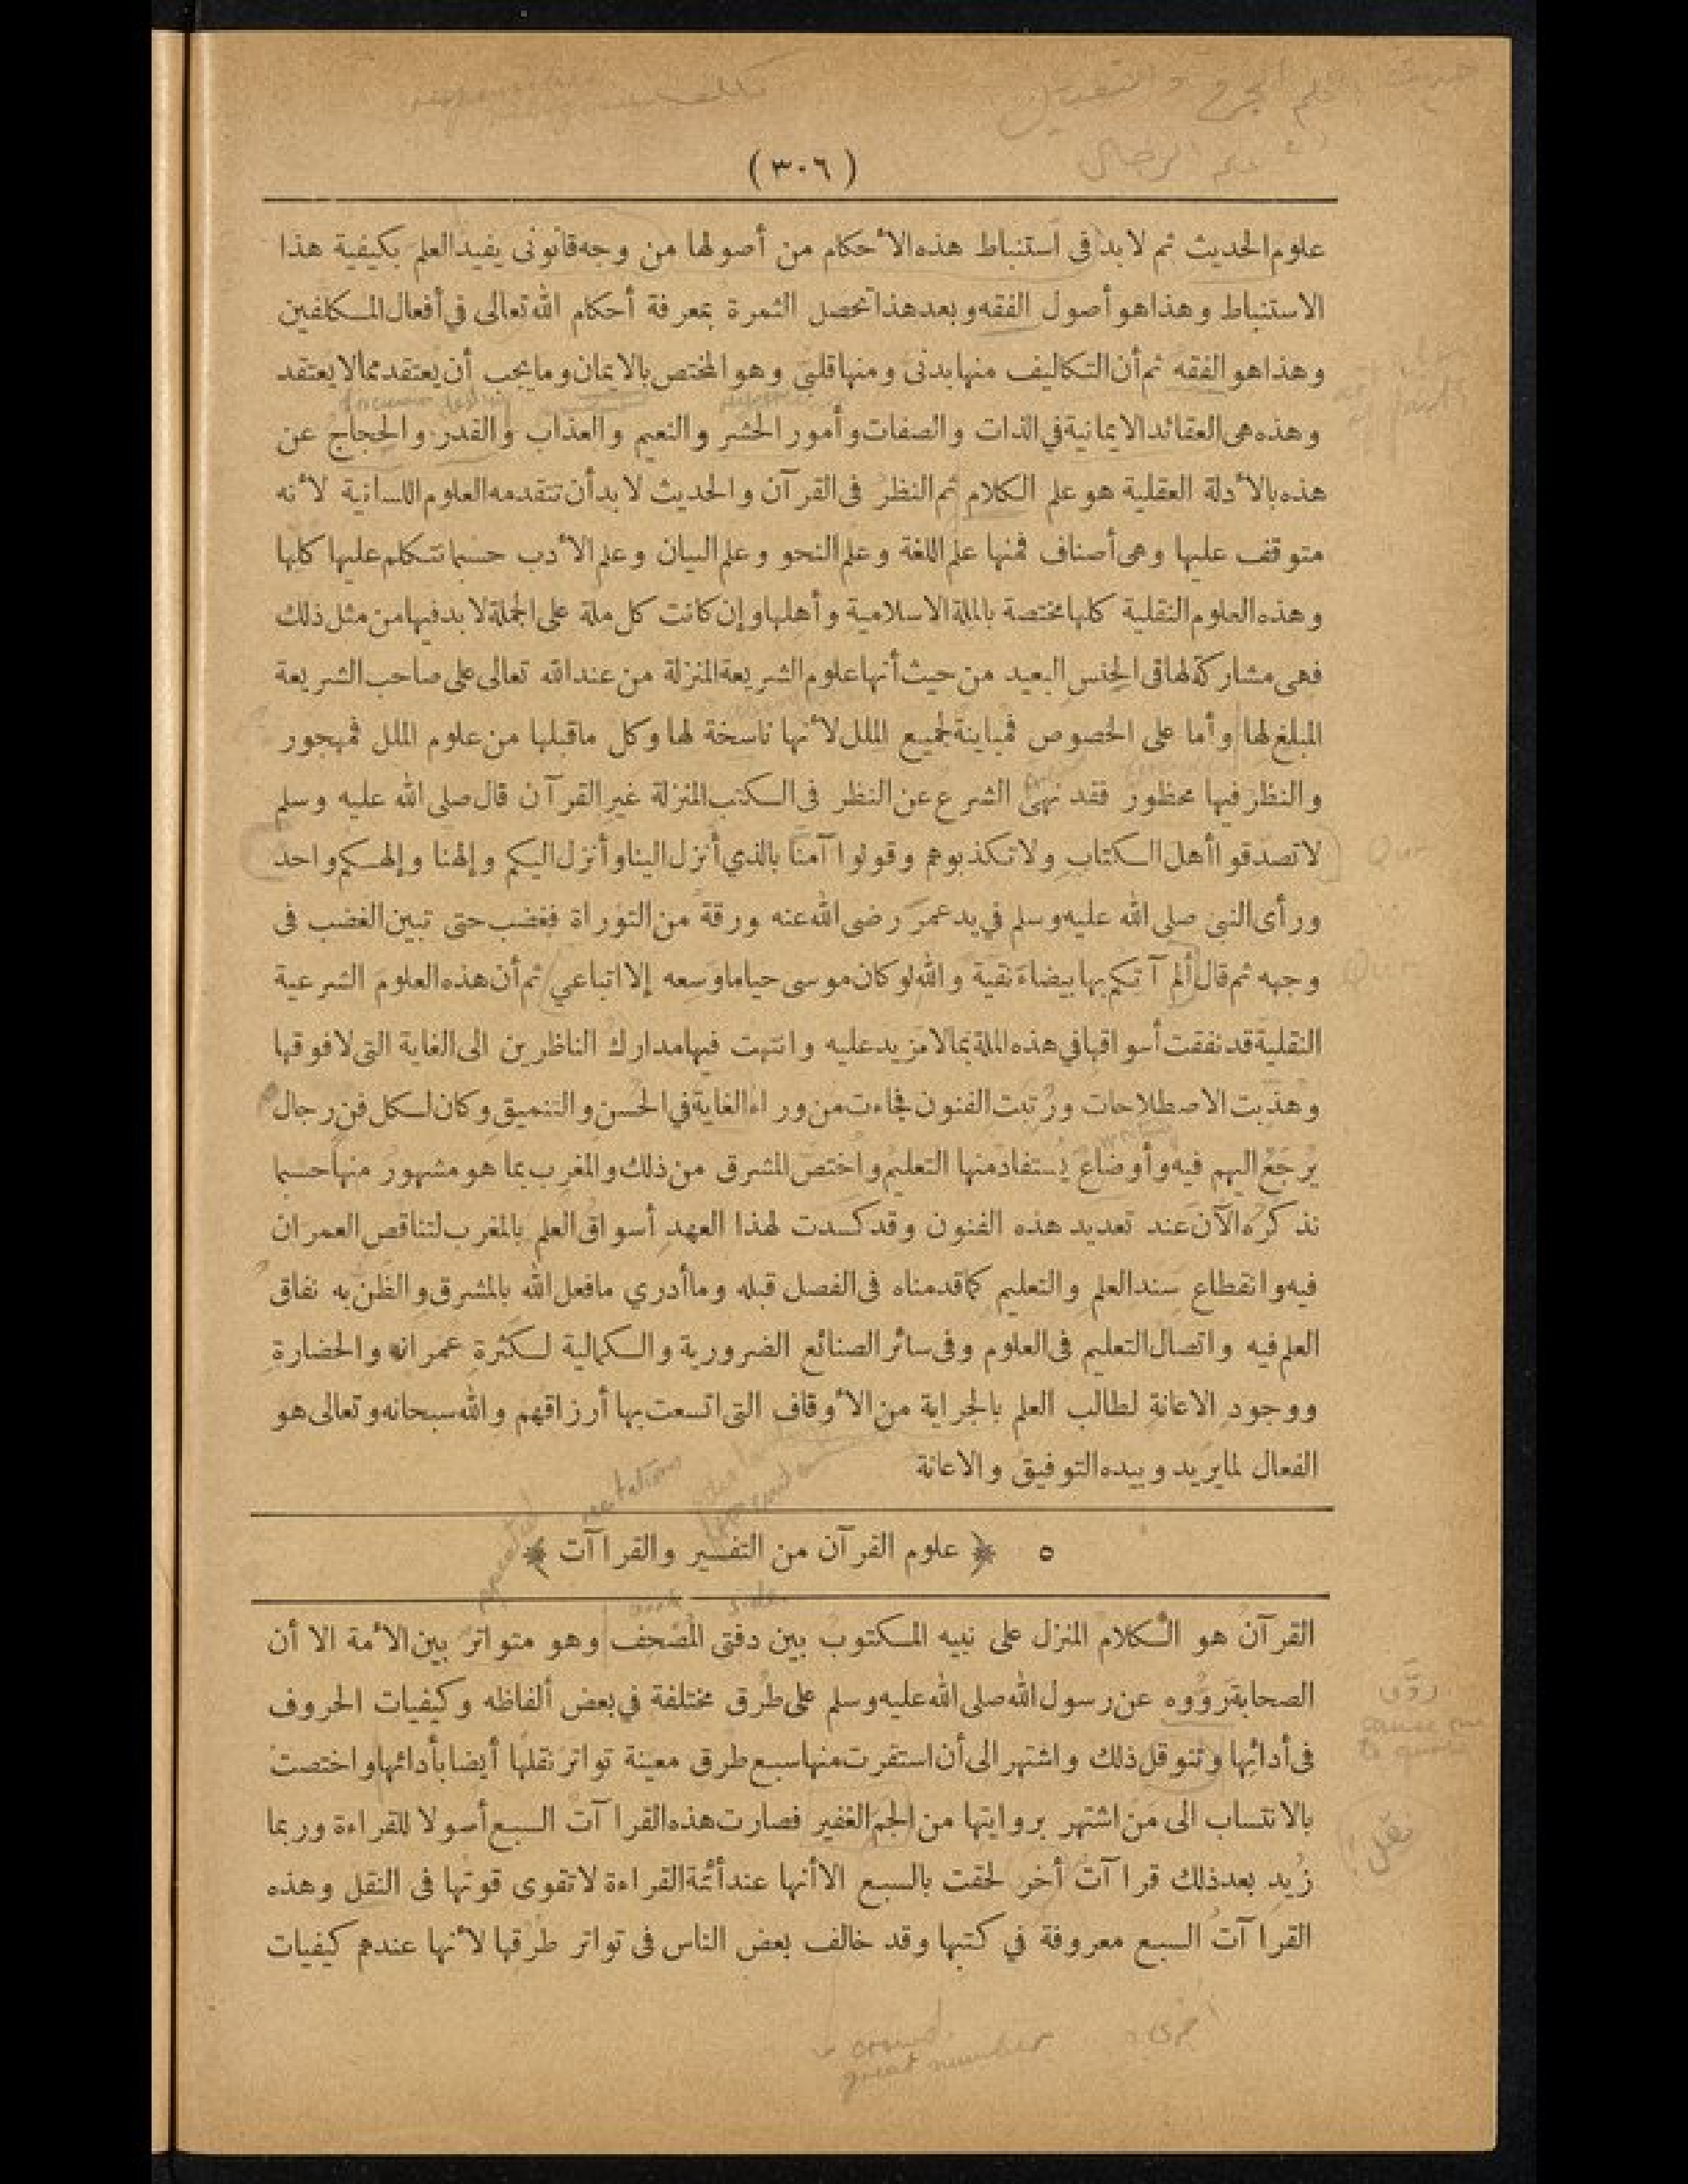 علم الجرح والتعديل
علم الرجال
(٣٠٦)
علوم الحديث ثم لا بد في استنباط هذه الأحكام من أصولها من وجه قانوني يفيد العلم بكيفية هذا
الاستنباط وهذا هو أصول الفقه وبعد هذا تحصل الثمرة بمعرفة أحكام الله تعالى في أفعال المكلفين
وهذا هو الفقه ثم أن التكاليف منها بدني ومنها قلبي وهو المختص بالايمان وما يجب أن يعتقد مما لا يعتقد
وهذه هي العقائد الايمانية في الذات والصفات وأمور الحشر والنعيم والعذاب والقدر والحجاج عن
هذه بالأدلة العقلية هو علم الكلام ثم النظر في القرآن والحديث لا بد أن تتقدمه العلوم اللسانية لأنه
متوقف عليها وهي أصناف فمنها علم اللغة وعلم النحو وعلم البيان وعلم الأدب حسبما نتكلم عليها كلها
وهذه العلوم النقلية كلها مختصة بالملة الاسلامية وأهلها وإن كانت كل ملة على الجملة لا بد فيها من مثل ذلك
فهي مشاركة لها في الجنس البعيد من حيث أنها علوم الشريعة المنزلة من عند الله تعالى على صاحب الشريعة
المبلغ لها وأما على الخصوص فمباينة لجميع الملل لأنها ناسخة لها وكل ما قبلها من علوم الملل فمهجور
والنظر فيها محظور فقد نهى الشرع عن النظر في الكتب المنزلة غير القرآن قال صلى الله عليه وسلم
لا تصدقوا أهل الكتاب ولا تكذبوهم وقولوا آمنا بالذي أنزل الينا وأنزل اليكم وإلهنا وإلهكم واحد
ورأى النبي صلى الله عليه وسلم في يد عمر رضي الله عنه ورقة من التوراة فغضب حتى تبين الغضب في
وجهه ثم قال ألم آتكم بها بيضاء نقية والله لو كان موسى حيا ما وسعه إلا اتباعي ثم أن هذه العلوم الشرعية
النقلية قد نفقت أسواقها في هذه الملة بما لا مزيد عليه وانتهت فيها مدارك الناظرين الى الغاية التي لا فوقها
وهذبت الاصطلاحات ورُتبت الفنون فجاءت من وراء الغاية في الحسن والتنميق وكان لكل فن رجال
يُرجَعُ اليهم فيه وأوضاع يُستفاد منها التعليم واختص المشرق من ذلك والمغرب بما هو مشهور منها حسبما
نذكره الآن عند تعديد هذه الفنون وقد كسدت لهذا العهد أسواق العلم بالمغرب لتناقص العمران
فيه وانقطاع سند العلم والتعليم كما قدمناه في الفصل قبله وما أدري ما فعل الله بالمشرق والظن به نفاق
العلم فيه واتصال التعليم في العلوم وفي سائر الصنائع الضرورية والكمالية لكثرة عمرانه والحضارة
ووجود الاعانة لطالب العلم بالجراية من الأوقاف التي اتسعت بها أرزاقهم والله سبحانه وتعالى هو
الفعال لما يريد وبيده التوفيق والاعانة
recitations
٥ ﴿ علوم القرآن من التفسير والقراآت ﴾
repeated
side
القرآن هو الكلام المنزل على نبيه المكتوب بين دفتي المصحف وهو متواتر بين الأمة الا أن
الصحابة رووه عن رسول الله صلى الله عليه وسلم على طرق مختلفة في بعض ألفاظه وكيفيات الحروف
في أدائها وتنوقل ذلك واشتهر الى أن استقرت منها سبع طرق معينة تواتر نقلها أيضا بأدائها واختصت
بالانتساب الى من اشتهر بروايتها من الجم الغفير فصارت هذه القراآت السبع أصولا للقراءة وربما
زُيد بعد ذلك قراآت أخر لحقت بالسبع الا أنها عند أئمة القراءة لا تقوى قوتها في النقل وهذه
القراآت السبع معروفة في كتبها وقد خالف بعض الناس في تواتر طرقها لأنها عندهم كيفيات
روّى
cause one
to quote
نقل
أخرى
crowd
great number